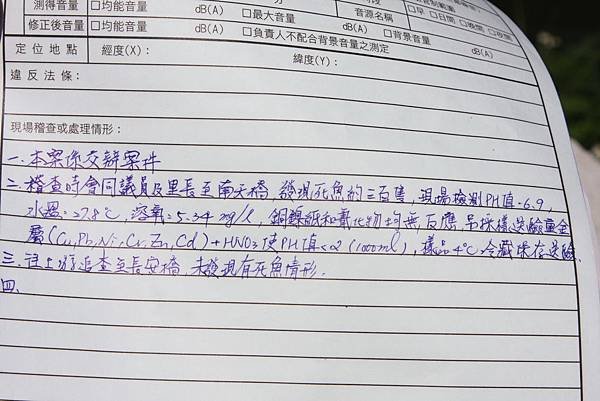 測得音量 □均能音量 dB(A) □最大音量 音源名稱 □早 □日間 □晚間 □夜間
修正後音量 □均能音量 dB(A) □負責人不配合背景音量之測定 dB(A) □背景音量 dB(A)
定位地點 經度(X): 緯度(Y):
違反法條:
現場稽查或處理情形:
一.本案係交辦案件
二.稽查時會同議員及里長至南天橋,發現死魚約三百隻,現場檢測PH值:6.9,
水溫:27.8℃,溶氧:5.34 mg/L,銅鎳試紙和氰化物均無反應,另採樣送驗重金
屬(Cu,Pb,Ni,Cr,Zn,Cd)+HNO3使PH值<2(1000ml),樣品4℃冷藏保存送驗.
三.往上游追查至長安橋,未發現有死魚情形.
四.